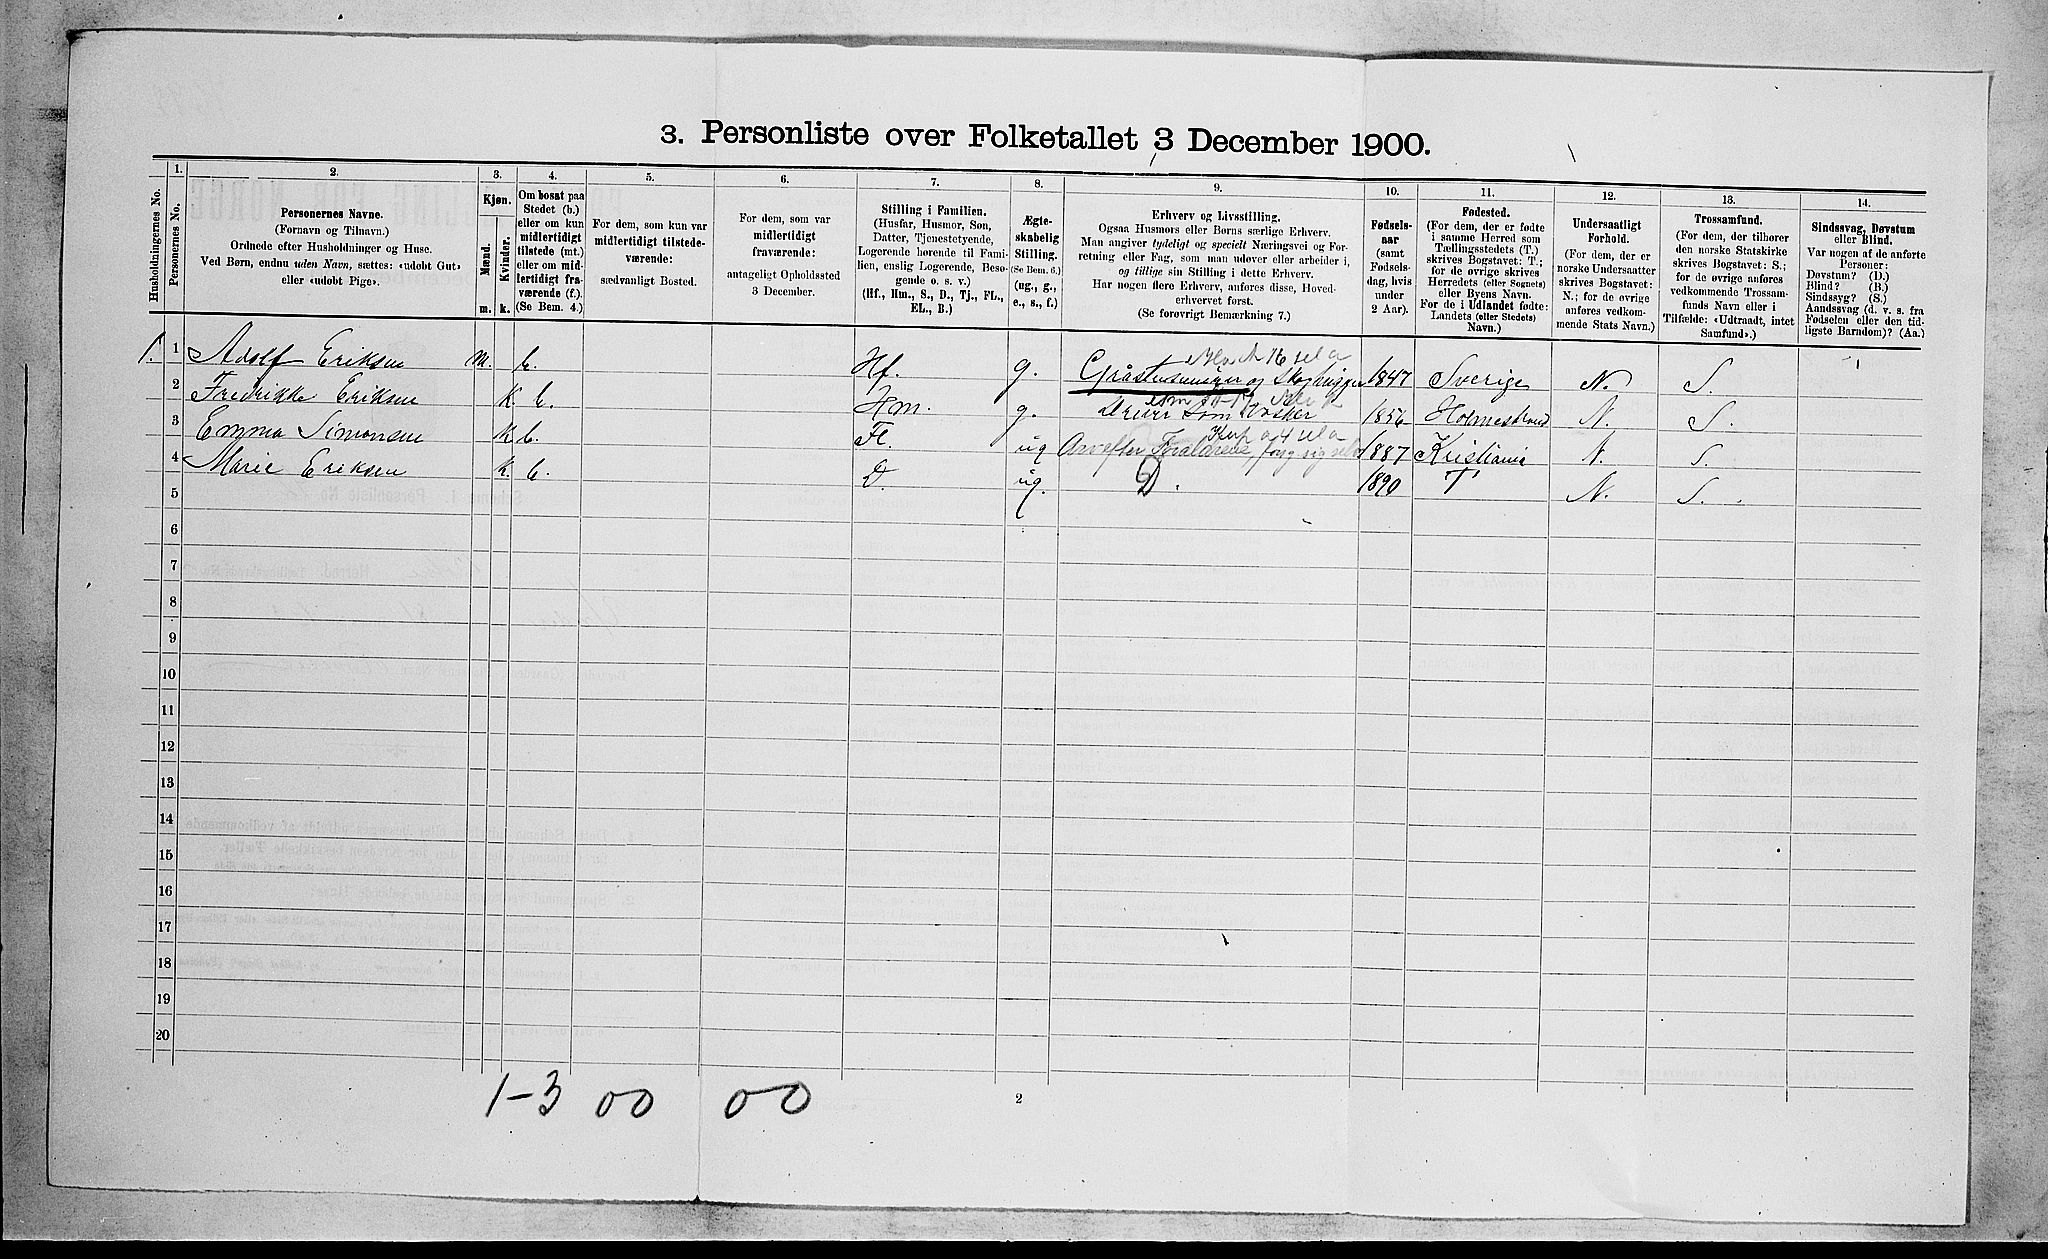 3. Personliste over Folketallet 3 December 1900.
Husholdningernes No.
1.
Personernes No.
2.
Personernes Navne.
(Fornavn og Tilnavn.)
Ordnede efter Husholdninger og Huse.
Ved Børn, endnu uden Navn, sættes: «udøbt Gut»
eller «udøbt Pige».
3.
Kjøn.
Mænd.
Kvinder.
m.
k.
4.
Om bosat paa
Stedet (b.)
eller om kun
midlertidigt
tilstede (mt.)
eller om mid-
lertidigt fra-
værende (f.).
(Se Bem. 4.)
5.
For dem, som kun var
midlertidigt tilstede-
værende:
sædvanligt Bosted.
6.
For dem, som var
midlertidigt
fraværende:
antageligt Opholdssted
3 December.
7.
Stilling i Familien.
(Husfar, Husmor, Søn,
Datter, Tjenestetyende,
Logerende hørende til Fami-
lien, enslig Logerende, Besø-
gende o. s. v.)
(Hf., Hm., S., D., Tj., FL.,
EL., B.)
8.
Ægte-
skabelig
Stilling.
(Se Bem. 6.)
(ug., g.,
e., s., f.)
9.
Erhverv og Livsstilling.
Ogsaa Husmors eller Børns særlige Erhverv.
Man angiver tydeligt og specielt Næringsvei og For-
retning eller Fag, som man udøver eller arbeider i,
og tillige sin Stilling i dette Erhverv.
Har nogen flere Erhverv, anføres disse, Hoved-
erhvervet først.
(Se forøvrigt Bemærkning 7.)
10.
Fødsels-
aar
(samt
Fødsels-
dag, hvis
under
2 Aar).
11.
Fødested.
(For dem, der er fødte
i samme Herred som
Tællingsstedets (T.)
skrives Bogstavet: T.;
for de øvrige skrives
Herredets (eller Sognets)
eller Byens Navn.
For de i Udlandet fødte:
Landets (eller Stedets)
Navn.)
12.
Undersaatligt
Forhold.
(For dem, der er
norske Undersaatter
skrives Bogstavet:
N.; for de øvrige
anføres vedkom-
mende Stats Navn.)
13.
Trossamfund.
(For dem, der tilhører
den norske Statskirke
skrives Bogstavet: S.;
for de øvrige anføres
vedkommende Trossam-
funds Navn eller i
Tilfælde: «Udtraadt, intet
Samfund».)
14.
Sindssvag, Døvstum
eller Blind.
Var nogen af de anførte
Personer:
Døvstum? (D.)
Blind? (B.)
Sindssyg? (S.)
Aandssvag (d. v. s. fra
Fødselen eller den tid-
ligste Barndom)? (Aa.)
1. 1 Adolf Eriksen m. b. Hf. g. Gråstensminør og Skohugger 1847 Sverige N. S.
2 Fredrikke Eriksen k. b. Hm. g. Driver som Vasker 1856 Holmestrand N. S.
3 Emma Simonsen k b. Fl. ug Arvefter Foraldrene 1887 Kristiania N. S.
4 Marie Eriksen k. b. D. ug. D. 1890 T N. S.
5
6
7
8
9
10
11
12
13
14
15
16
17
18
19
20
1-3 00 00
2